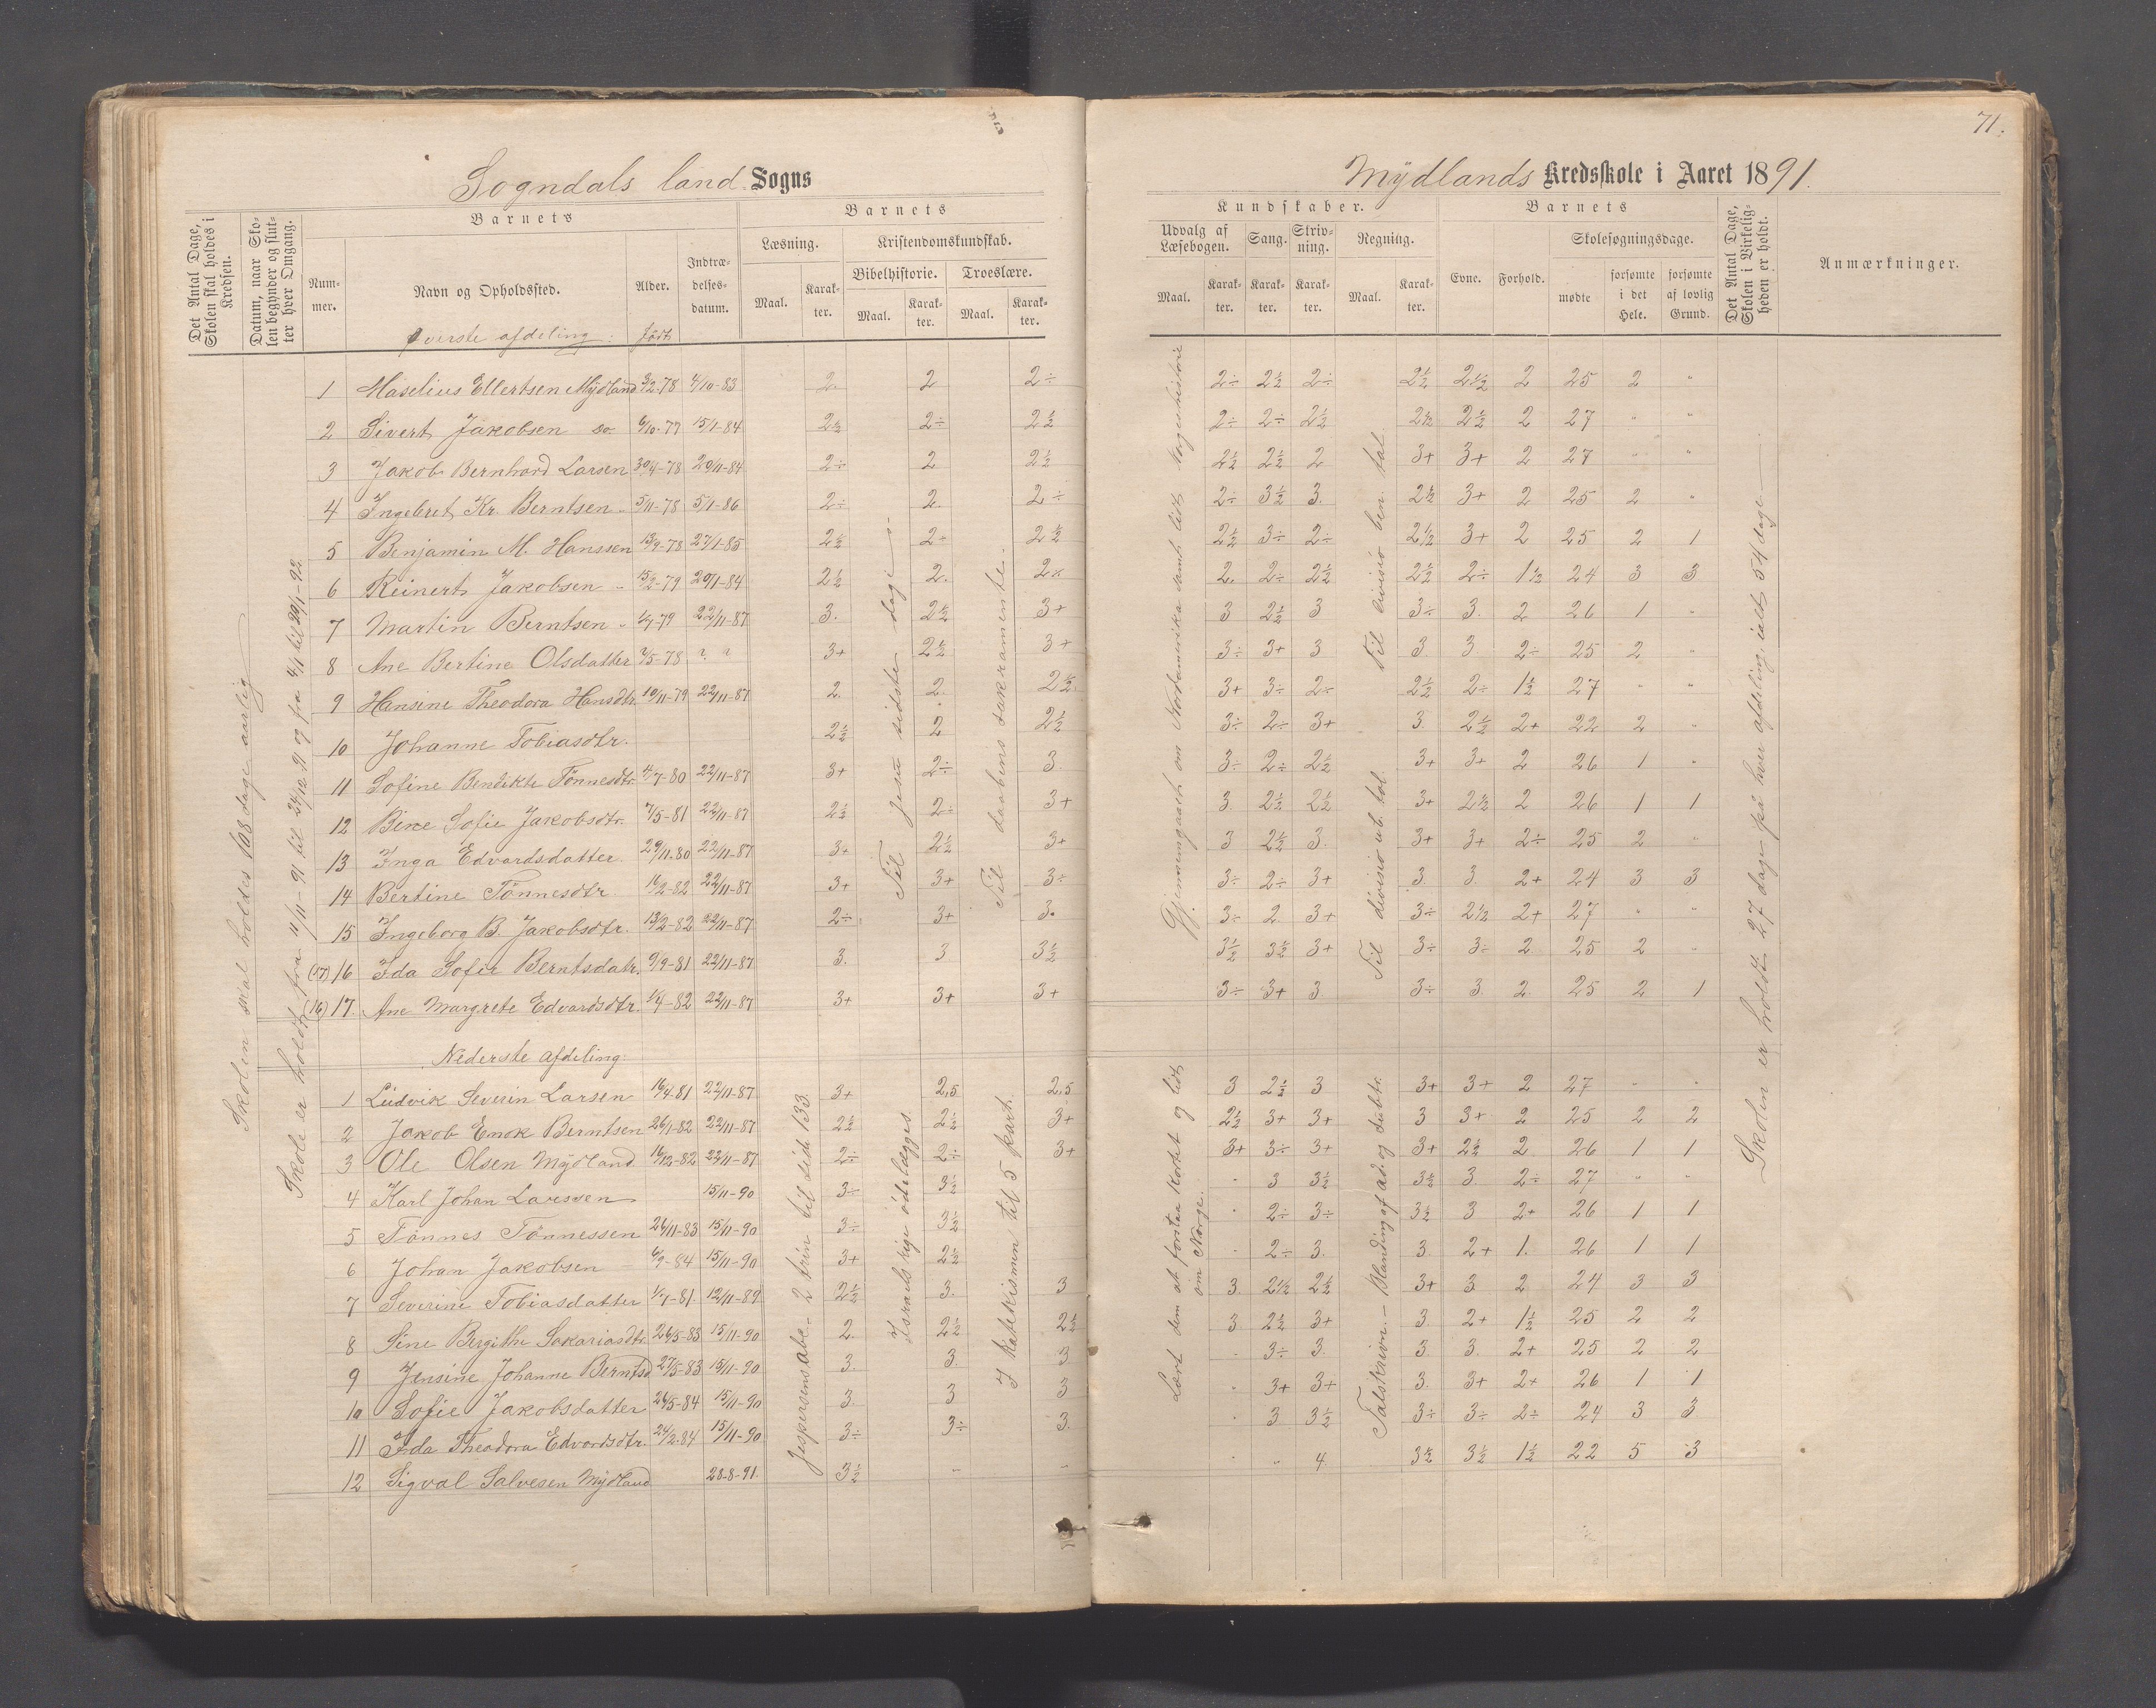 71.
Sogndals land Sogns
Mydlands Kredsskole i Aaret 1891.
Det Antal Dage, Skolen skal holdes i Kredsen.
Datum, naar Skolen begynder og slutter hver Omgang.
Barnets
Nummer.
Navn og Opholdssted.
Alder.
Indtrædelsesdatum.
Barnets
Læsning.
Kristendomskundskab.
Bibelhistorie.
Troeslære.
Maal. Karakter. Maal. Karakter. Maal. Karakter.
Kundskaber.
Udvalg af Læsebogen.
Sang.
Skrivning.
Regning.
Maal. Karakter. Karakter. Karakter. Maal. Karakter.
Barnets
Evne. Forhold.
Skolesøgningsdage.
mødte
forsømte i det Hele.
forsømte af lovlig Grund.
Det Antal Dage, Skolen i Virkeligheden er holdt.
Anmærkninger.
Øverste afdeling: født
1 Maselius Ellertsen Mydland 3/2-78 4/10-83 2. 2 2÷ 2÷ 2½ 2÷ 2½ 2½ 2 25 2 "
2 Sivert Jakobsen do. 6/10-77 15/1-84 2½ 2÷ 2½ 2÷ 2÷ 2½ 2½ 2½ 2 27 " "
3 Jakob Bernhard Larsen 30/4-78 20/11-84 2÷ 2 2½ 2½ 2½ 2 3+ 3+ 2 27 " "
4 Ingebret Kr. Berntsen " 5/11-78 5/1-86 2÷ 2. 2÷ 2÷ 3½ 3. 2½ 3+ 2 25 2 "
5 Benjamin M. Hanssen 13/9-78 27/1-85 2½ 2÷ 2½ 2½ 3÷ 2÷ 2½ 3+ 2 25 2 1
6 Reinert Jakobsen " 15/2-79 20/1-84 2½ 2. 2. 2÷ 2½ 2½ 2÷ 1½ 24 3 3
7 Martin Berntsen " 22/11-87 3. 2½ 3+ 3 2½ 3 3÷ 3. 2 26 1 "
8 Ane Bertine Olsdatter 7/5-78 ? ? 3+ 2½ 3+ 3÷ 3+ 3 3. 3 2÷ 25 2 "
9 Hansine Theodora Hansdtr. 10/11-79 22/11-87 2. 2. 2½ 3+ 3÷ 2÷ 2½ 2÷ 1½ 27 " "
10 Johanne Tobiasdtr. 2½ 2 2½ 3÷ 2÷ 3+ 3. 2½ 2+ 22 2 "
11 Sofine Bendikte Tönnesdtr. 4/7-80 22/11-87 3+ 2÷ 3. 3÷ 2÷ 2½ 3+ 3+ 2 26 1 "
12 Bine Sofie Jakobsdtr. 7/5-81 22/11-87 2½ 2÷ 3+ 3. 2½ 2½ 3+ 2½ 2 26 1 1
13 Inga Edvardsdatter 29/11-80 22/11-87 3+ 2½ 3+ 3 2½ 3. 3+ 3+ 2÷ 25 2 "
14 Bertine Tönnesdtr. 16/2-82 22/11-87 3+ 3+ 3÷ 3÷ 2÷ 3+ 3. 3. 2+ 24 3 3
15 Ingeborg B. Jakobsdtr. 13/2-82 22/11-87 2÷ 3+ 3. 3÷ 2. 3+ 3÷ 2½ 2+ 27 " "
(17) 16 Ida Sofie Berntsdatr. 9/9-81 22/11-87 3. 3 3½ 3½ 3½ 3+ 3÷ 3÷ 2. 25 2 "
(16) 17. Ane Margrete Edvardsdtr. 1/4-82 22/11-87 3+ 3+ 3+ 3÷ 3+ 3. 3÷ 3. 2. 25 2 1
Nederste afdeling:
1 Ludvik Severin Larsen 16/4-81 22/11-87 3+ 2,5 2,5 3 2½ 3 3+ 3+ 2 27 " "
2 Jakob Enok Berntsen 26/1-82 22/11-87 2½ 2½ 3+ 2½ 3+ 3+ 3 3+ 2 25 2 2
3 Ole Olsen Mydland 16/12-82 22/11-87 2÷ 2÷ 3+ 3+ 3÷ 3+ 3+ 2½ 2 26 1 1
4 Karl Johan Larssen 15/11-90 3÷ 3½ " 3 3½ 3½ 3. 2÷ 27 " "
5 Tönnes Tönnessen 26/11-83 15/11-90 3÷ 3½ " 2÷ 3÷ 3½ 3 2+ 26 1 1
6 Johan Jakobsen 6/9-84 15/11-90 3+ 2½ " 2÷ 3. 3. 2+ 1. 26 1 1
7 Severine Tobiasdatter 1/7-81. 12/11-89 2½ 3. 3 3. 2½ 2½ 3+ 3. 2 24 3 3
8 Sine Bergithe Sakariasdtr. 26/5-83 15/11-90 2. 2½ 2½ 3 2½ 3+ 3. 2+ 1½ 25 2 2
9 Jensine Johanne Berntsd 27/5-83 15/11-90 3. 3. 3 " 3÷ 3. 3. 3. 2+ 25 2 2
10 Sofie Jakobsdatter 26/5-84 15/11-90 3. 3 3 " 3+ 3+ 3. 3+ 2+ 26 1 1
11 Ida Theodora Edvardsdtr. 24/2-84 15/11-90 3÷ 3÷ 3. " 3 3½ 3÷ 3÷ 2÷ 24 3 3
12 Sigval Salvesen Mydland 28-8-91. 3½ - - " " 4 3½ 3½ 1½ 22 5 3
Skolen skal holdes 108 dage aarlig
Skole er holdt fra 11/11-91 til 24/12 91 og fra 4/1 til 20/1-92.
Jespersens abc - 2 trin til side 133.
Til Jesu sidste dage -
Israels rige ödelægges.
Til daabens sakramente.
I katekismen til 5 part.
Gjennemgaaet om Nordamerika samt lidt kogeshistorie
Lært dem at forstaa kartet og lidt om Norge.
Til divisio ben. tal.
Til divisio ub. tal.
Talskrivn. - Blanding af ad. og subtr.
Skolen er holdt 27 dage på hver afdeling, ialt 54 dage